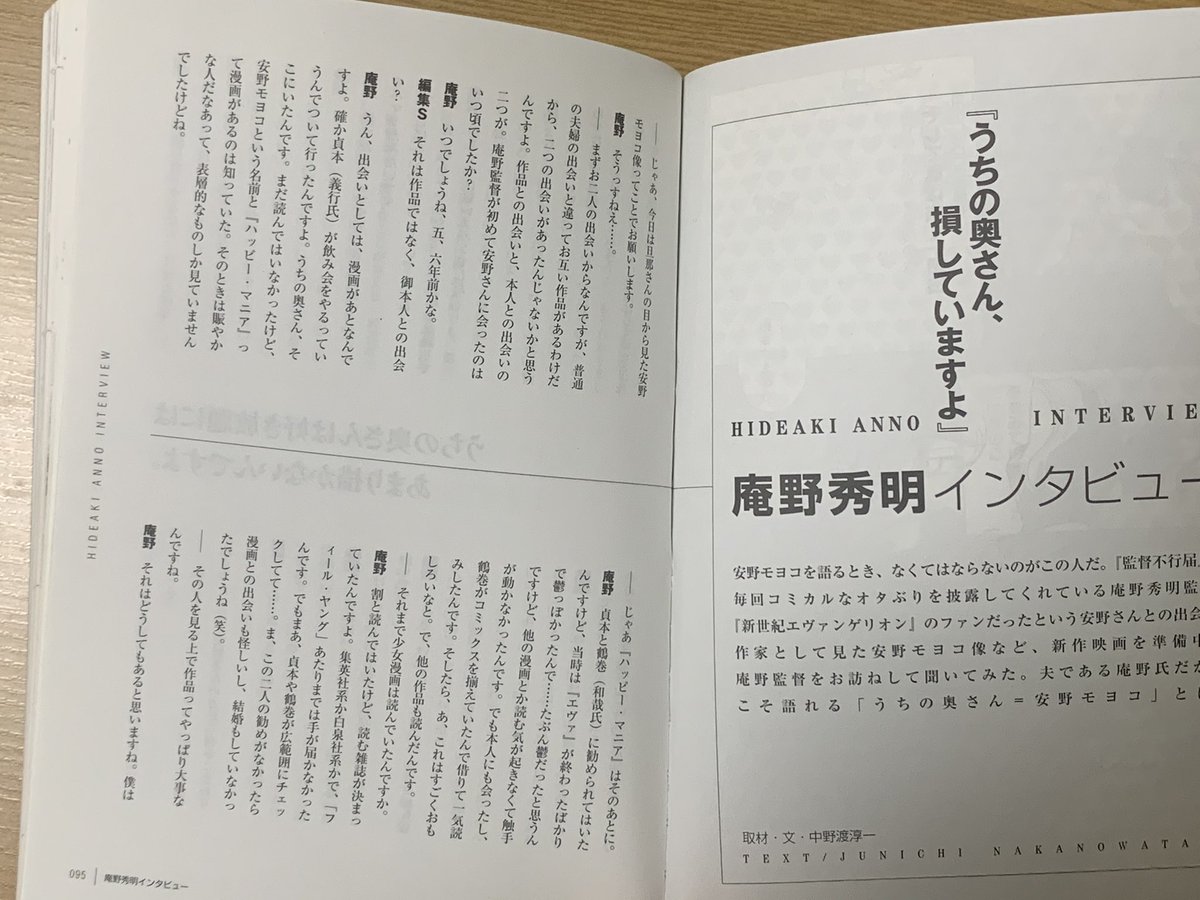 『うちの奥さん、
損していますよ』
HIDEAKI ANNO INTERVIE
庵野秀明インタビュー
安野モヨコを語るとき、なくてはならないのがこの人だ。『監督不行届』
毎回コミカルなオタぶりを披露してくれている庵野秀明監
『新世紀エヴァンゲリオン』のファンだったという安野さんとの出会
作家として見た安野モヨコ像など、新作映画を準備中
庵野監督をお訪ねして聞いてみた。夫である庵野氏だか
こそ語れる「うちの奥さん＝安野モヨコ」とは
取材・文・中野渡淳一
TEXT/JUNICHI NAKANOWATA
――じゃあ、今日は旦那さんの目から見た安野
モヨコ像ってことでお願いします。
庵野 そうっすねえ……。
――まずお二人の出会いからなんですが、普通
の夫婦の出会いと違ってお互い作品があるわけだ
から、二つの出会いがあったんじゃないかと思う
んですよ。作品との出会いと、本人との出会いの
二つが。庵野監督が初めて安野さんに会ったのは
いつ頃でしたか？
庵野 いつでしょうね、五、六年前かな。
編集S それは作品ではなく、御本人との出会
い？
庵野 うん、出会いとしては、漫画があとなんで
すよ。確か貞本（義行氏）が飲み会をやるってい
うんでついて行ったんですよ。うちの奥さん、そ
こにいたんです。まだ読んではいなかったけど、
安野モヨコという名前と『ハッピー・マニア』っ
て漫画があるのは知っていた。そのときは賑やか
な人だなあって、表層的なものしか見ていません
でしたけどね。
――じゃあ『ハッピー・マニア』はそのあとに。
庵野 貞本と鶴巻（和哉氏）に勧められてはいた
んですけど、当時は『エヴァ』が終わったばかり
で鬱っぽかったんで……たぶん鬱だったと思うん
ですけど、他の漫画とか読む気が起きなくて触手
が動かなかったんです。でも本人にも会ったし、
鶴巻がコミックスを揃えていたんで借りて一気読
みしたんです。そしたら、あ、これはすごくおも
しろいなと。で、他の作品も読んだんです。
――それまで少女漫画は読んでいたんですか。
庵野 割と読んではいたけど、読む雑誌が決まっ
ていたんですよ。集英社系か白泉社系かで、「フ
ィール・ヤング」あたりまでは手が届かなかった
んです。でもまあ、貞本や鶴巻が広範囲にチェッ
クしてて……。ま、この二人の勧めがなかったら
漫画との出会いも怪しいし、結婚もしていなかっ
たでしょうね（笑）。
――その人を見る上で作品ってやっぱり大事な
んですね。
庵野 それはどうしてもあると思いますね。僕は
HIDEAKI ANNO INTERVIEW
095 庵野秀明インタビュー